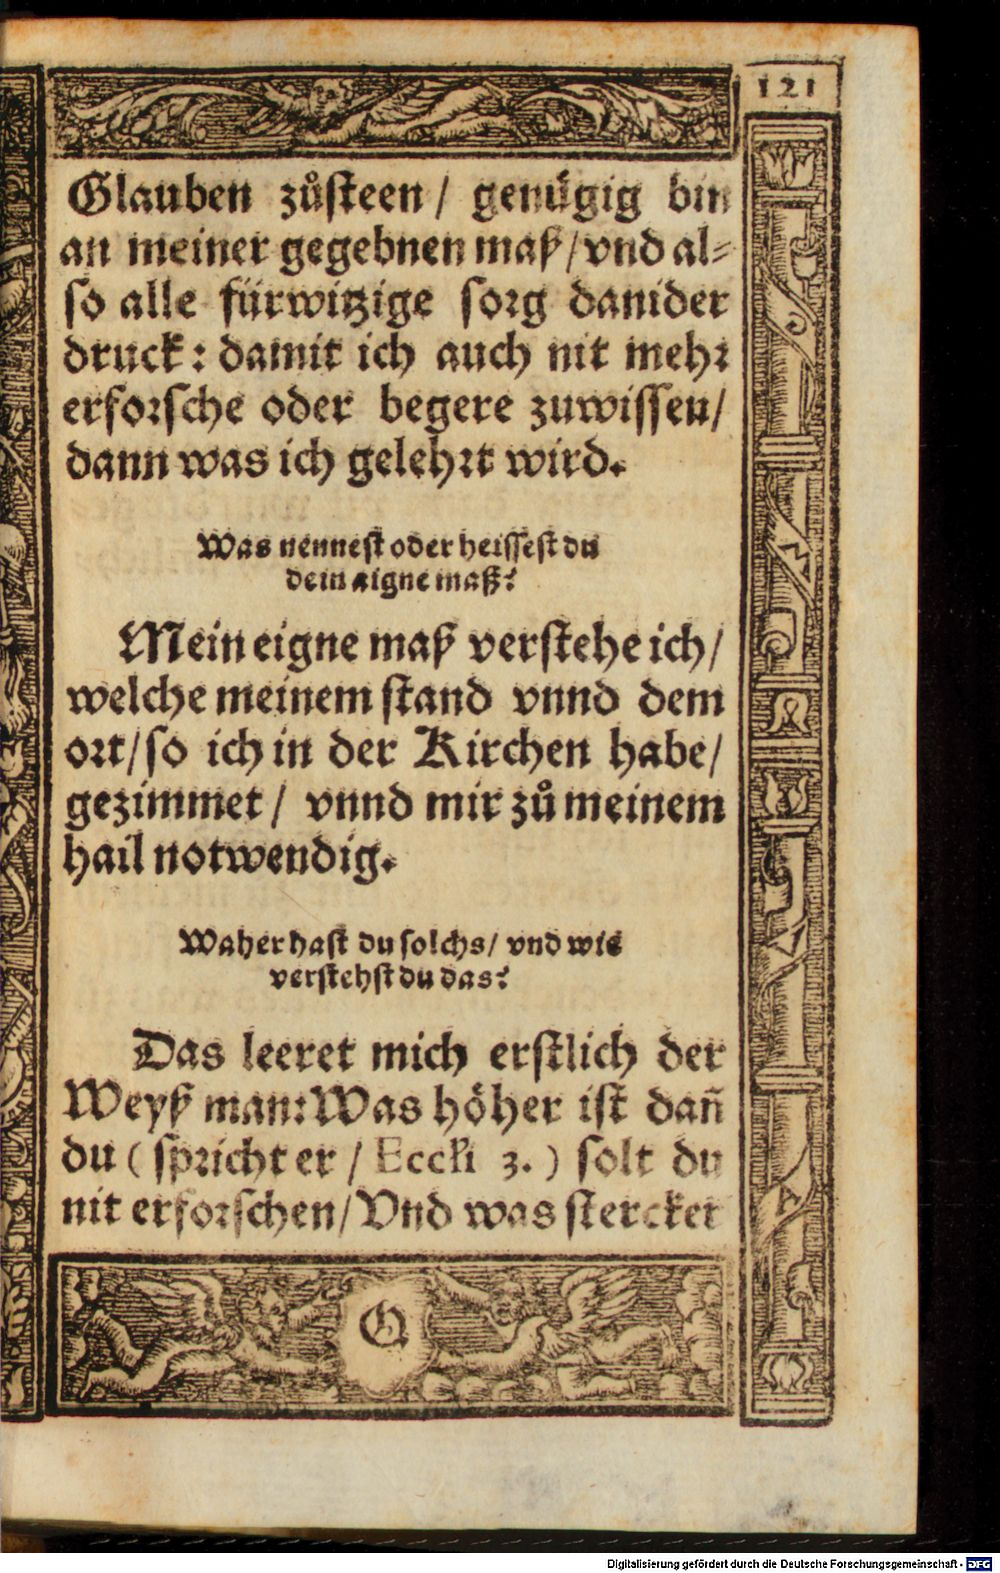 121
Glauben zůsteen / genügig bin
an meiner gegebnen maß / vnd al=
so alle fürwitzige sorg danider
druck: damit ich auch nit mehr
erforsche oder begere zuwissen /
dann was ich gelehrt wird.
Was nennest oder heissest du
dein aigne maß?
Mein eigne maß verstehe ich /
welche meinem stand vnnd dem
ort / so ich in der Kirchen habe /
gezimmet / vnnd mir zů meinem
hail notwendig.
Waher hast du solchs / vnd wie
verstehst du das?
Das leeret mich erstlich der
Weyß man: Was höher ist dañ
du ( spricht er / Eccli 3. ) solt du
nit erforschen / Vnd was stercker
Q
Digitalisierung gefördert durch die Deutsche Forschungsgemeinschaft - DFG